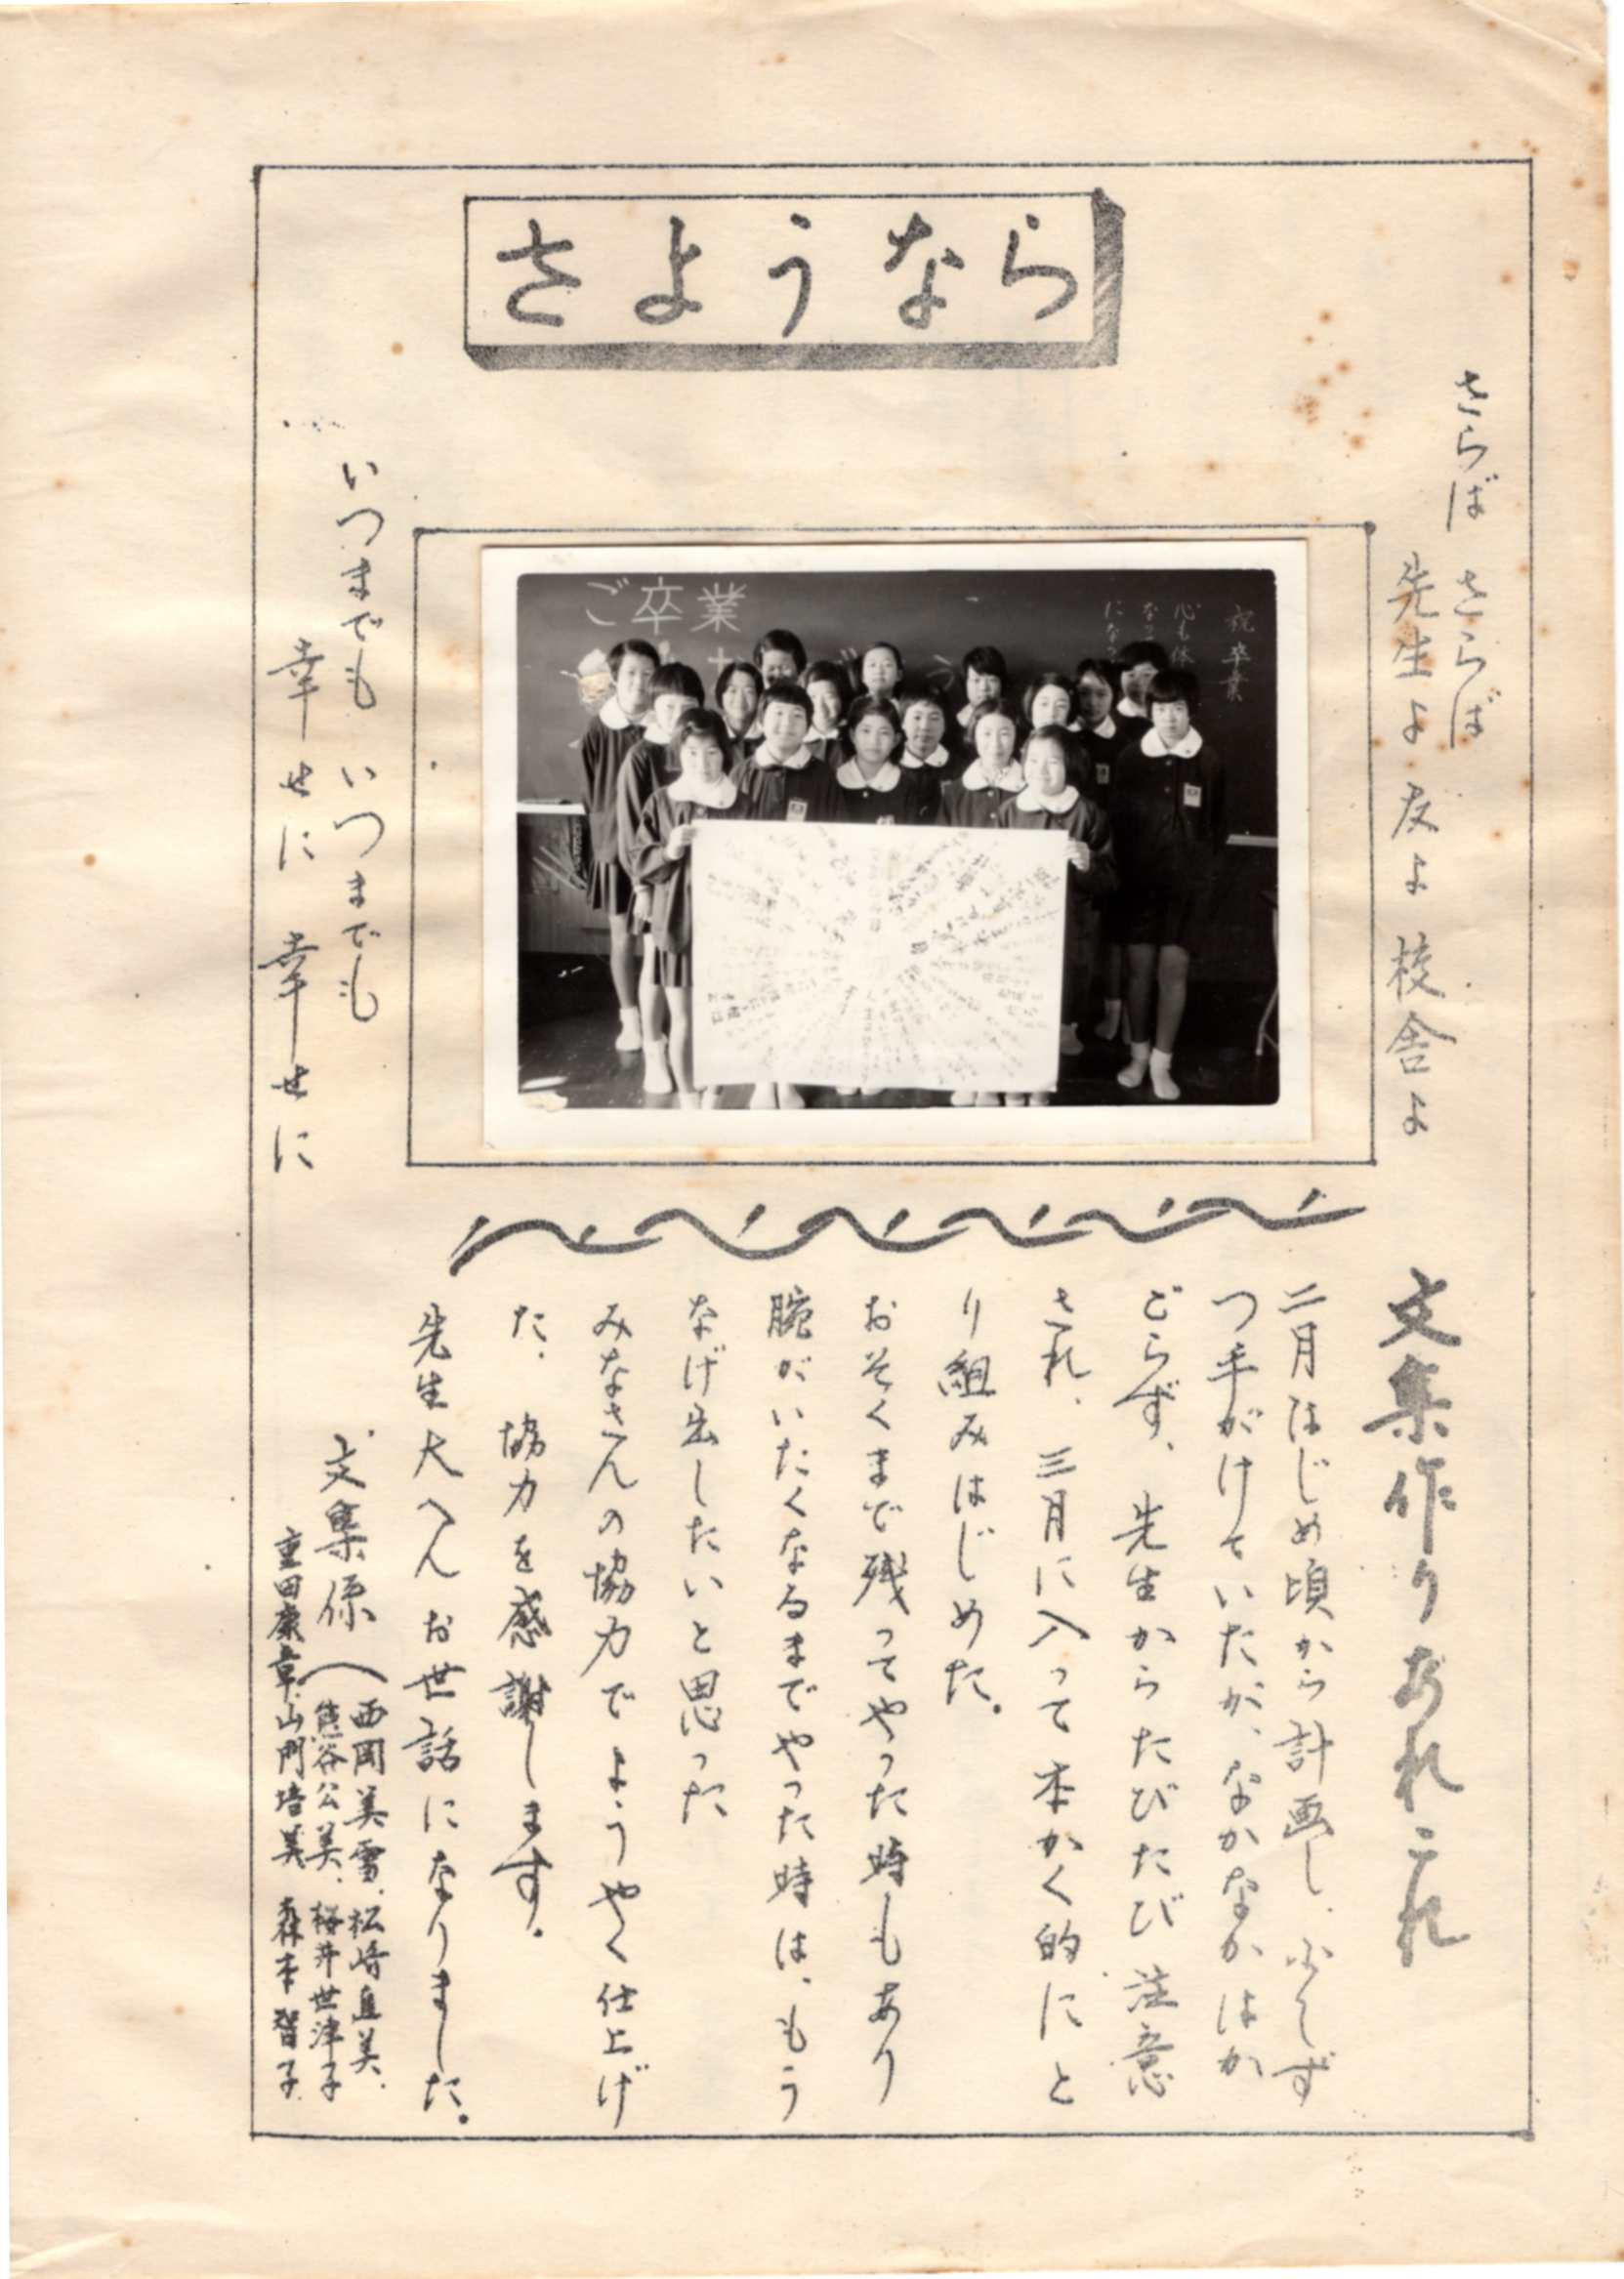 さようなら
さらば さらば
先生よ友よ校舎よ
ご卒業
祝卒業
心も体
になる
いつまでも いつまでも
幸せに 幸せに
文集作りあれこれ
二月はじめ頃から計画し、少しず
つ手がけていたが、なかなかはか
どらず、先生からたびたび注意
され、三月に入って本かく的にと
り組みはじめた。
おそくまで残ってやった時もあり
腕がいたくなるまでやった時は、もう
なげ出したいと思った
みなさんの協力でようやく仕上げ
た、協力を感謝します。
先生大へんお世話になりました。
文集係(西岡美雪、松崎直美、
熊谷公美、桜井世津子
重田康章、山門培美 森本智子